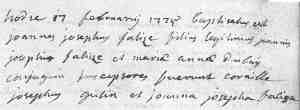 hodie 17 februarij 1775 baptisatus est
joannes josephus falize filius legitimus joannis
josephus falize et maria anna
conjugum susceptores fuerunt corneille
josephus et joanna josepha falize